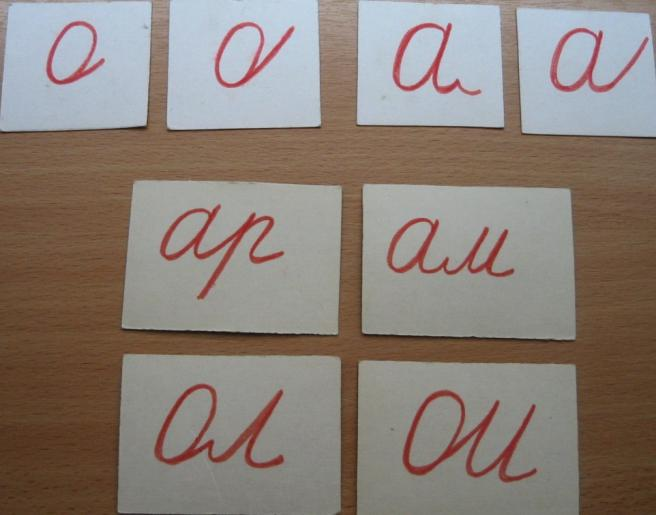 о о а а
ар ам
ол ои